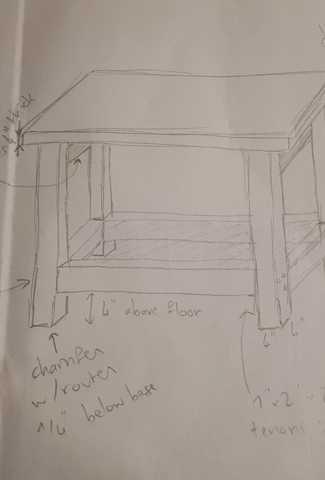 thick
4" above floor
chamfer
w/router
1/4" below base
6" 6"
1" x 2" x
tenons